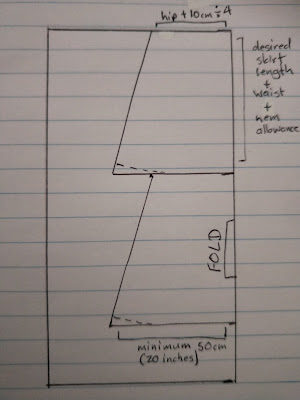 hip + 10cm ÷ 4
desired
skirt
length
+
waist
+
hem
allowance
FOLD
minimum 50cm
(20 inches)